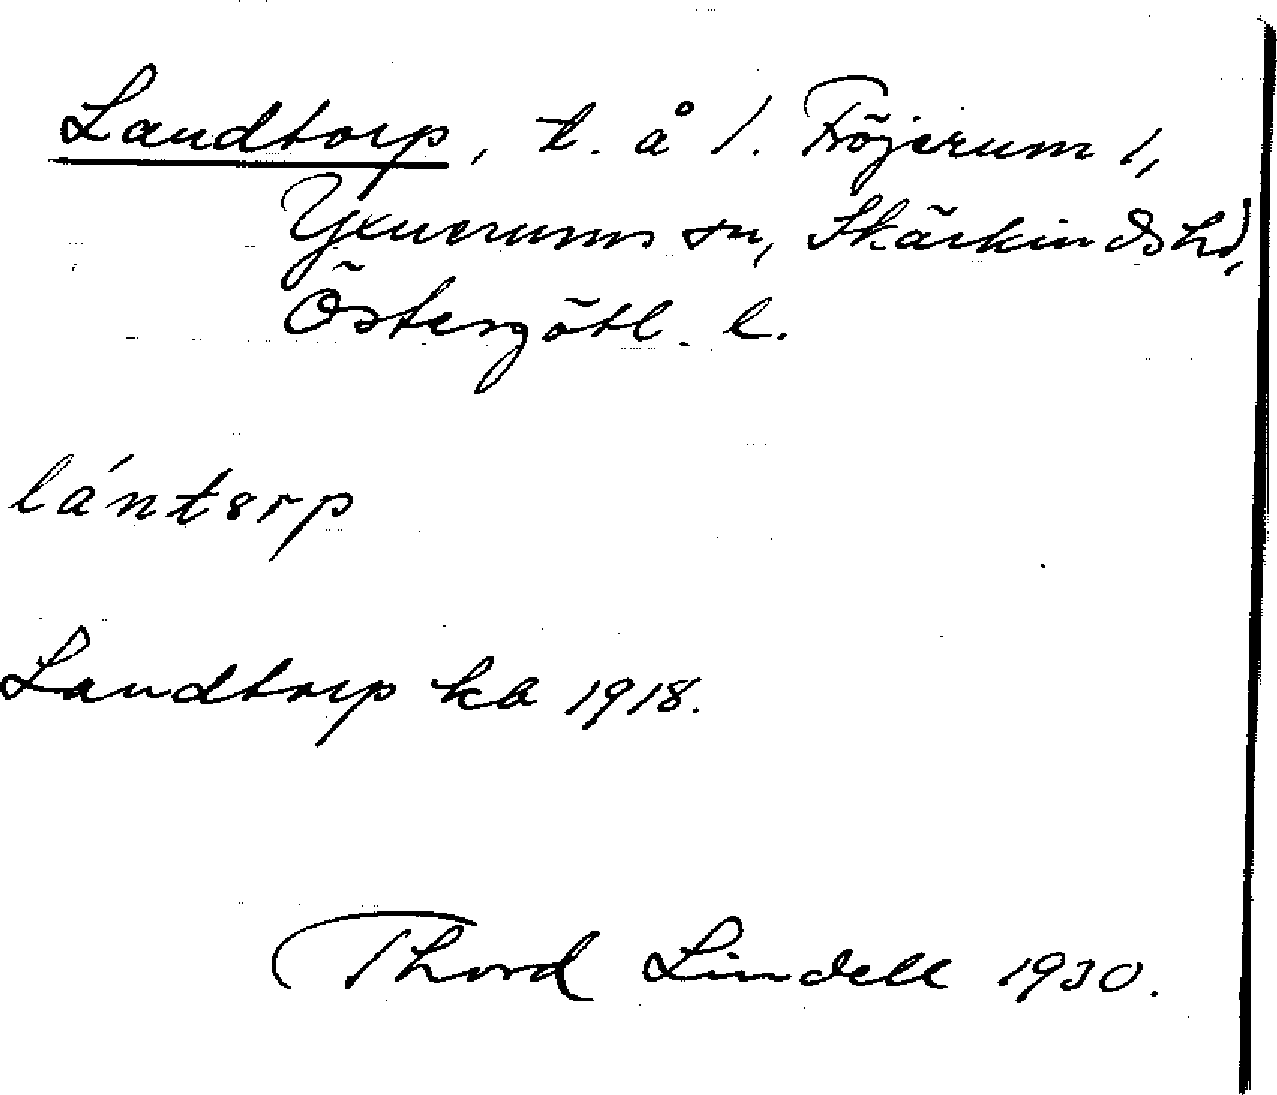 Landtorp, t. å 1. Fröjerum 1,
Yxnerums sn, Skärkinds hd,
Östergötl. l.
lántərp
Landtorp ka 1918.
Thord Lindell 1930.